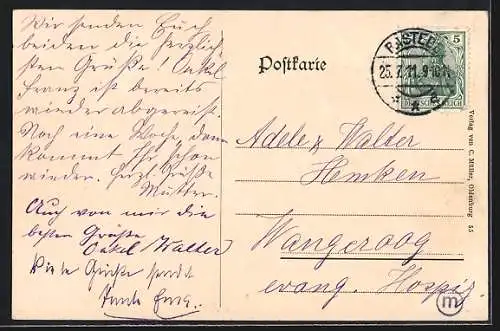 Wir senden Euch
beiden die herzlich-
sten Grüße! Onkel
Franz ist bereits
wieder abgereist.
Noch eine Woche, dann
kommt Ihr schon
wieder. Herzl. Grüße
Mutter.
Auch von mir die
besten Grüße
Onkel Walter
Viele Grüße sendet
Tante
Postkarte
RASTEDE
25.7.11.9-10V.
5
DEUTSCHES REICH
Adele & Walter
Hemken
Wangeroog
evang. Hospiz
Verlag von C. Müller, Oldenburg 55
m